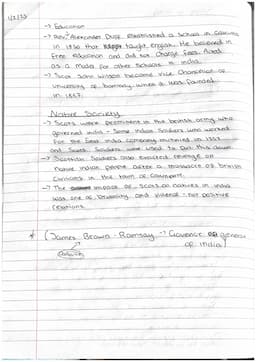 → Education
→ Rev. Alexander Duff established a school in Calcutta
in 1830 that taught English. He believed in
free education and did not charge fees. Acted
as a model for other schools in India.
→ Scot John Wilson became vice Chancellor of
University of Bombay when it was founded
in 1857.
Native Society
→ Scots were prominent in the British army who
governed India - Some Indian Soldiers who worked
for the East India company mutinied in 1857
and Scots Soldiers were used to put this down.
→ Scottish Soldiers also exacted revenge on
native Indian people after a massacre of British
civilians in the town of Cawnpore.
→ The impact of Scots on natives in India
was one of brutality and violence - not positive
relations.
* (James Brown-Ramsay → Governor general
of India)